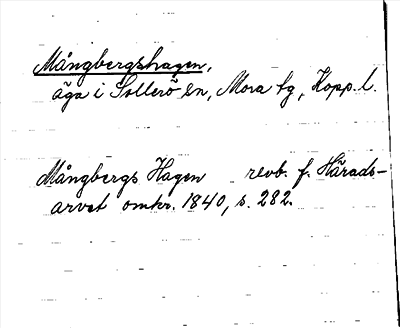 Mångbergshagen,
äga i Sollerö sn, Mora tg, Kopp. l.
Mångbergs Hagen revb. f. Härads-
arvet omkr. 1840, s. 282.